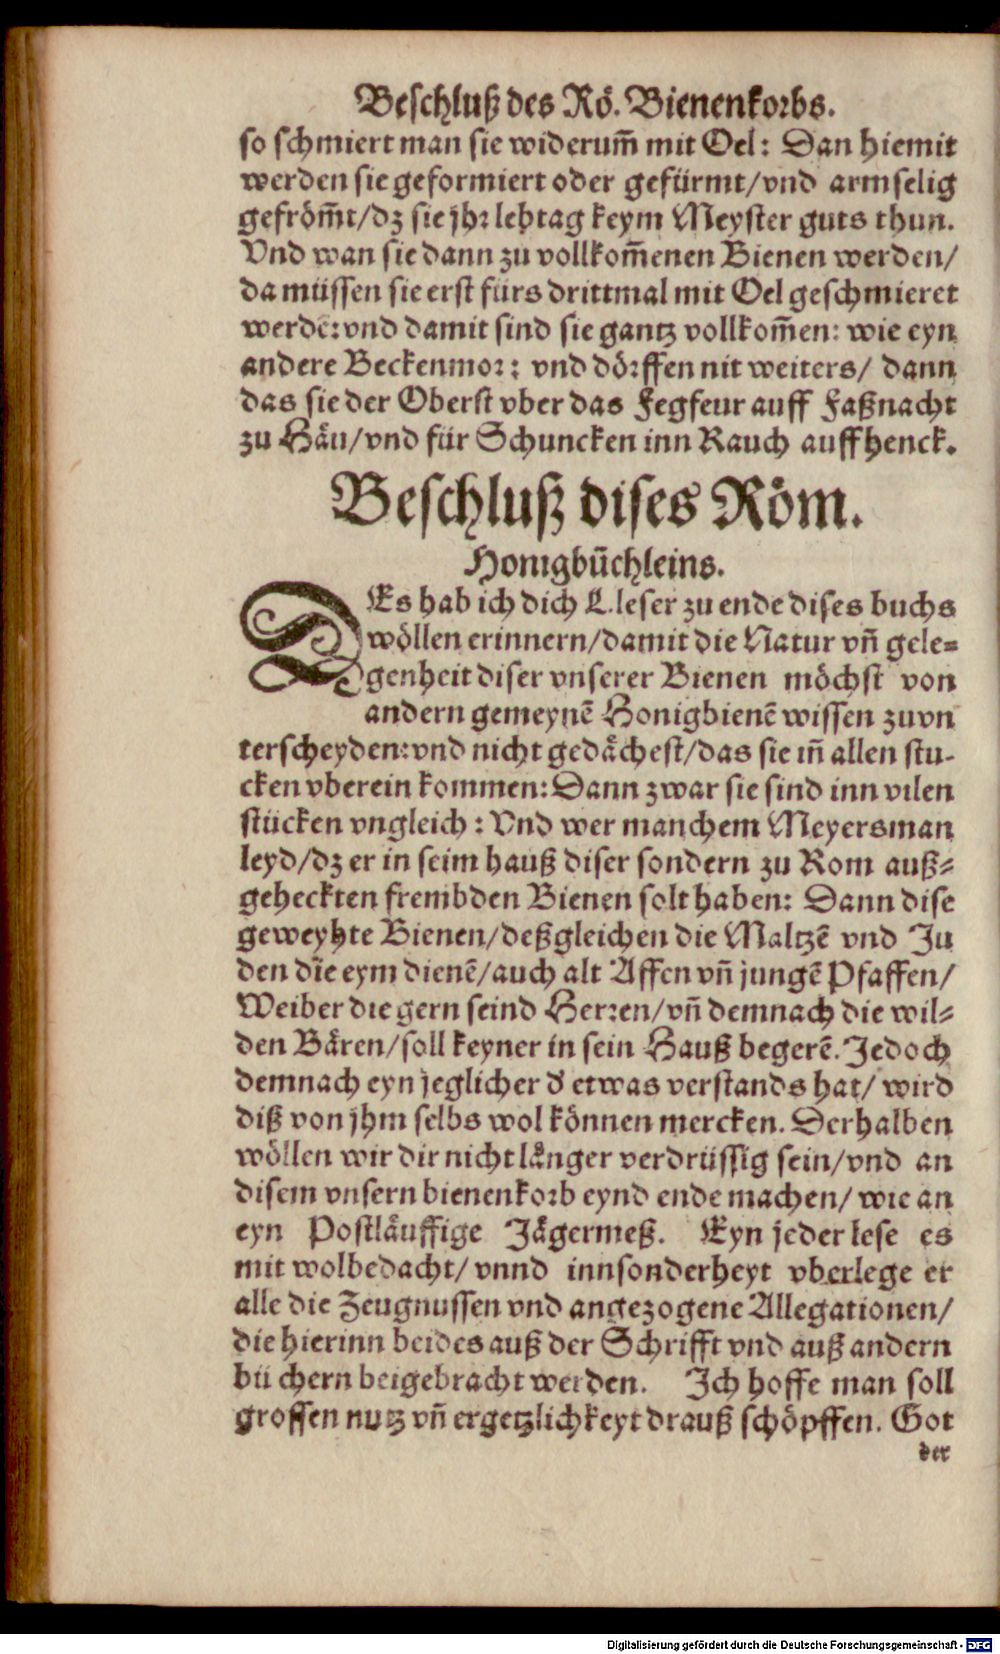 Beschluß des Rö. Bienenkorbs.
so schmiert man sie widerum̃ mit Oel: Dan hiemit
werden sie geformiert oder gefürmt/vnd armselig
gefröm̃t/dz sie jhr lebtag keym Meyster guts thun.
Vnd wan sie dann zu vollkom̃enen Bienen werden/
da müssen sie erst fürs drittmal mit Oel geschmieret
werdẽ: vnd damit sind sie gantz vollkom̃en: wie eyn
andere Beckenmor: vnd dörffen nit weiters/ dann
das sie der Oberst vber das Fegfeur auff Faßnacht
zu Häu/vnd für Schuncken inn Rauch auffhenck.
Beschluß dises Röm.
Honigbüchleins.
DEs hab ich dich L. leser zu ende dises buchs
wöllen erinnern/damit die Natur vñ gele-
genheit diser vnserer Bienen möchst von
andern gemeynẽ Honigbienẽ wissen zuvn
terscheyden: vnd nicht gedächest/das sie iñ allen stu-
cken vberein kommen: Dann zwar sie sind inn vilen
stücken vngleich: Vnd wer manchem Meyersman
leyd/dz er in seim hauß diser sondern zu Rom auß-
geheckten frembden Bienen solt haben: Dann dise
geweyhte Bienen/deßgleichen die Maltzẽ vnd Ju
den die eym dienẽ/auch alt Affen vñ jungẽ Pfaffen/
Weiber die gern seind Herren/vñ demnach die wil-
den Bären/soll keyner in sein Hauß begerẽ. Jedoch
demnach eyn jeglicher d' etwas verstands hat/ wird
diß von jhm selbs wol können mercken. Derhalben
wöllen wir dir nicht länger verdrüssig sein/vnd an
disem vnsern bienenkorb eynd ende machen/ wie an
eyn Postläuffige Jägermeß. Eyn jeder lese es
mit wolbedacht/ vnnd innsonderheyt vberlege er
alle die Zeugnussen vnd angezogene Allegationen/
die hierinn beides auß der Schrifft vnd auß andern
bü chern beigebracht werden. Ich hoffe man soll
grossen nutz vñ ergetzlichkeyt drauß schöpffen. Got
der
Digitalisierung gefördert durch die Deutsche Forschungsgemeinschaft - DFG